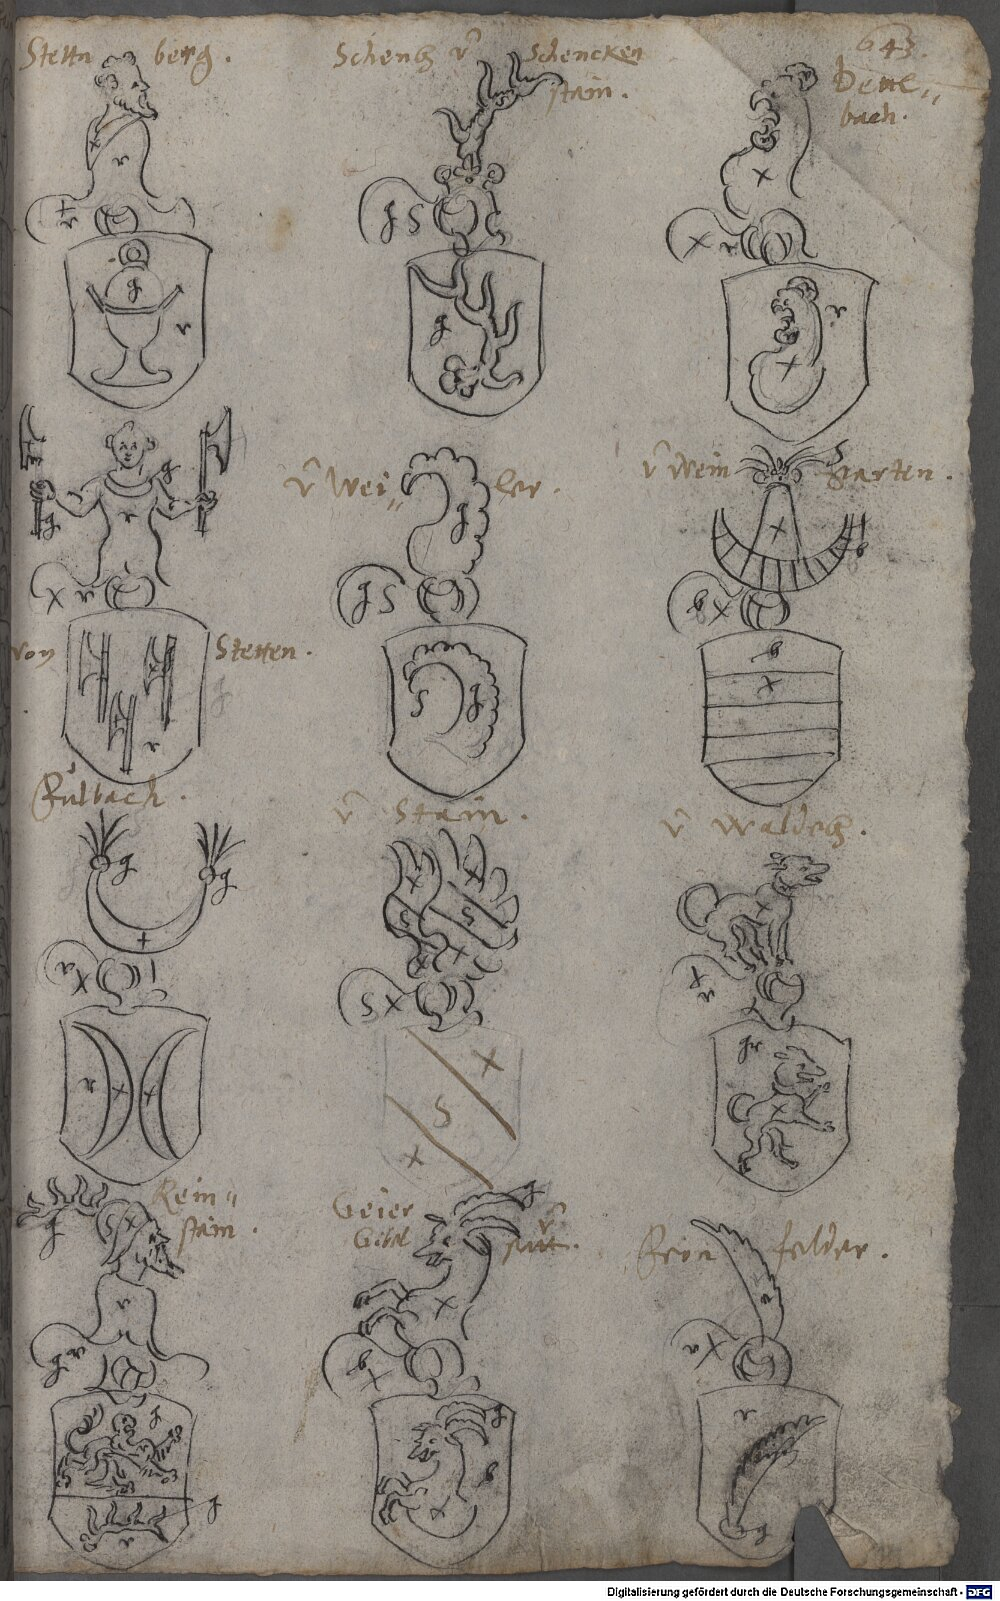 643.
Stettn berg.
Schenck v̂ Schencken
stain.
Dettl=
bach.
x v
r
v
g
g s
g
x
x v
x
v
g
g
r
x v
v̂ Wei= ler.
g
g s
s g
v̂ Wein garten.
x
b
b x
b
x
von Stetten.
r
Fulbach.
g
g
x
v x
r x x
v̂ Stain.
x x
s s
x x
s x
x
s
x
v̂ Waldeck.
x
x
v
gr
x
Rein=
stain.
g
x
v
g v
g
v
g
r
Geier
Gibel v̂
g
x
b
x
g
b
x
Rein felder.
v x
r
g
Digitalisierung gefördert durch die Deutsche Forschungsgemeinschaft - DFG